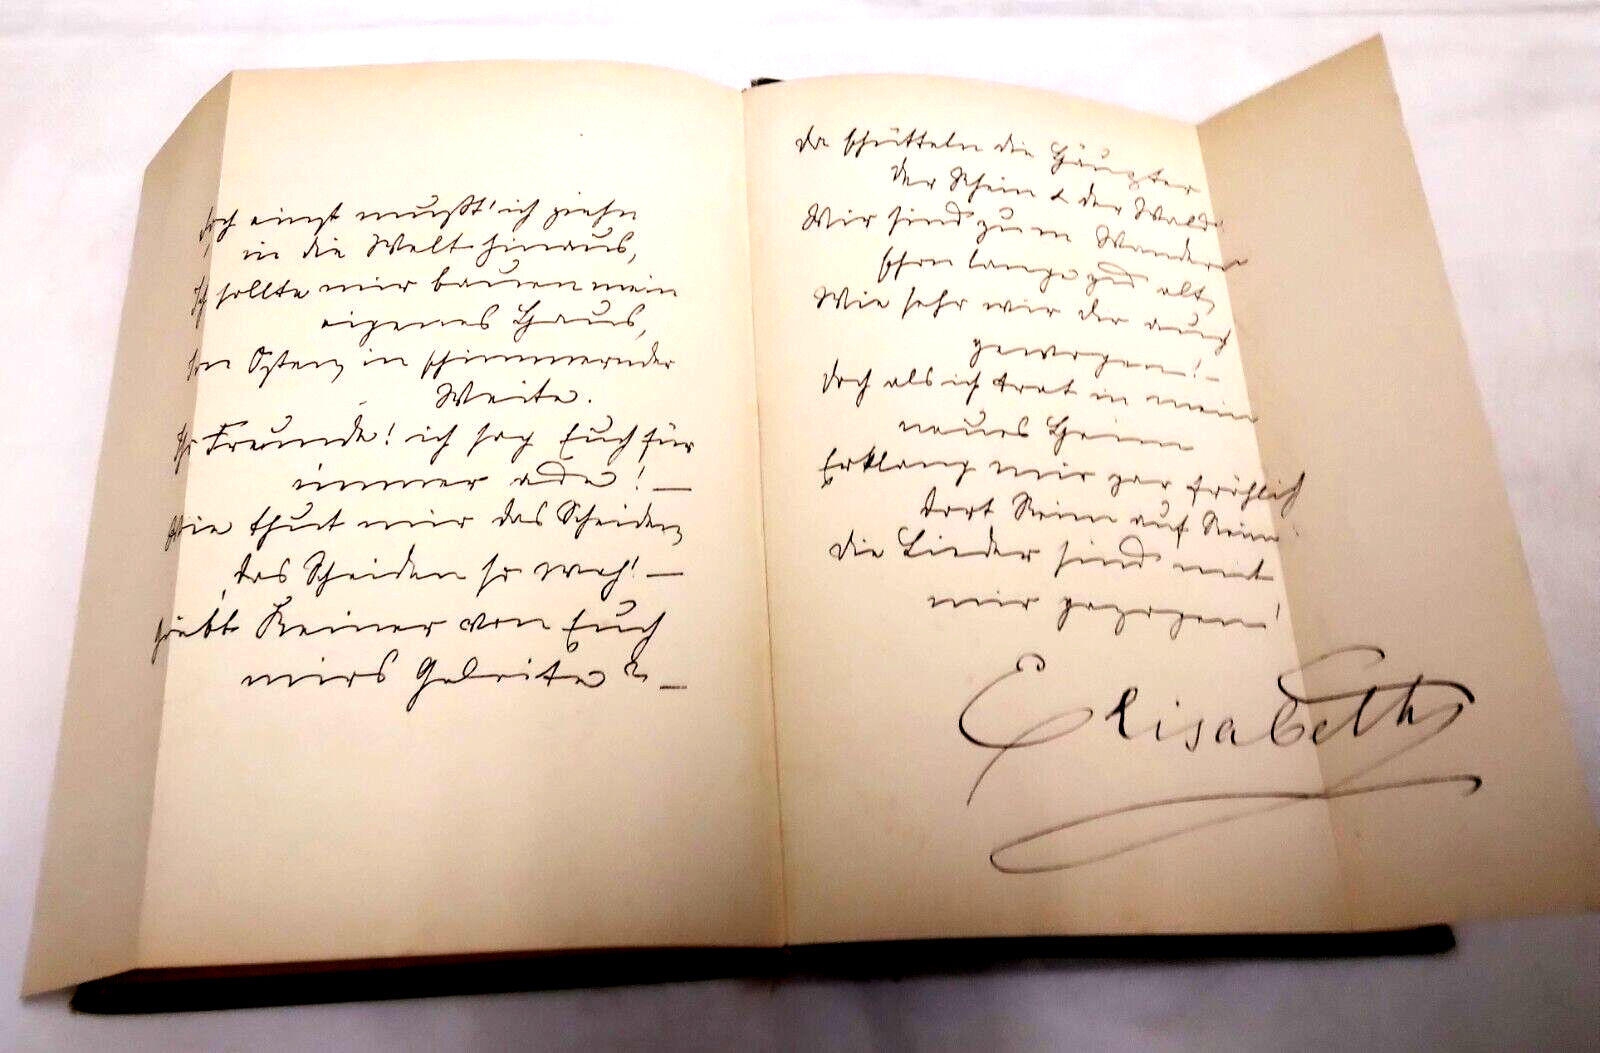 Doch einst mußt' ich ziehn
in die Welt hinaus,
Ich sollte mir bauen mein
eigenes Haus,
Im Osten, in schimmernder
Weite.
Ihr Freunde! ich sag Euch für
immer ade! —
Wie thut mir das Scheiden,
das Scheiden so weh! —
Giebt Keiner von Euch
mirs Geleite? —
Da schütteln die Häupter
der Rhein & der Wald:
Wir sind zum Wandern
schon lange zu alt,
Wie sehr wir dir auch
gewogen! —
Doch als ich trat in mein
neues Heim
Erklang mir gar fröhlich
dort Reim auf Reim:
Die Lieder sind mit
mir gezogen!
Elisabeth